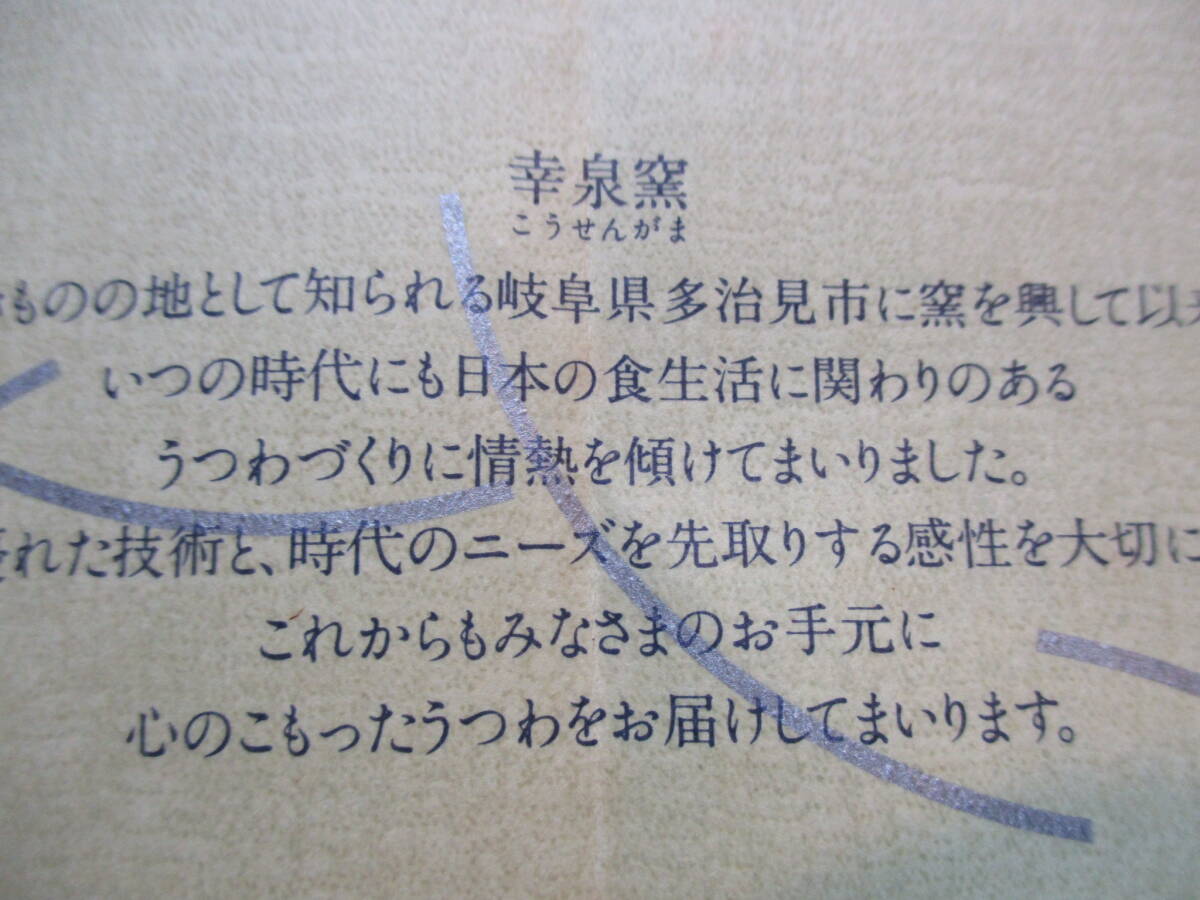 幸泉窯
こうせんがま
ものの地として知られる岐阜県多治見市に窯を興して以
いつの時代にも日本の食生活に関わりのある
うつわづくりに情熱を傾けてまいりました。
れた技術と、時代のニーズを先取りする感性を大切に
これからもみなさまのお手元に
心のこもったうつわをお届けしてまいります。